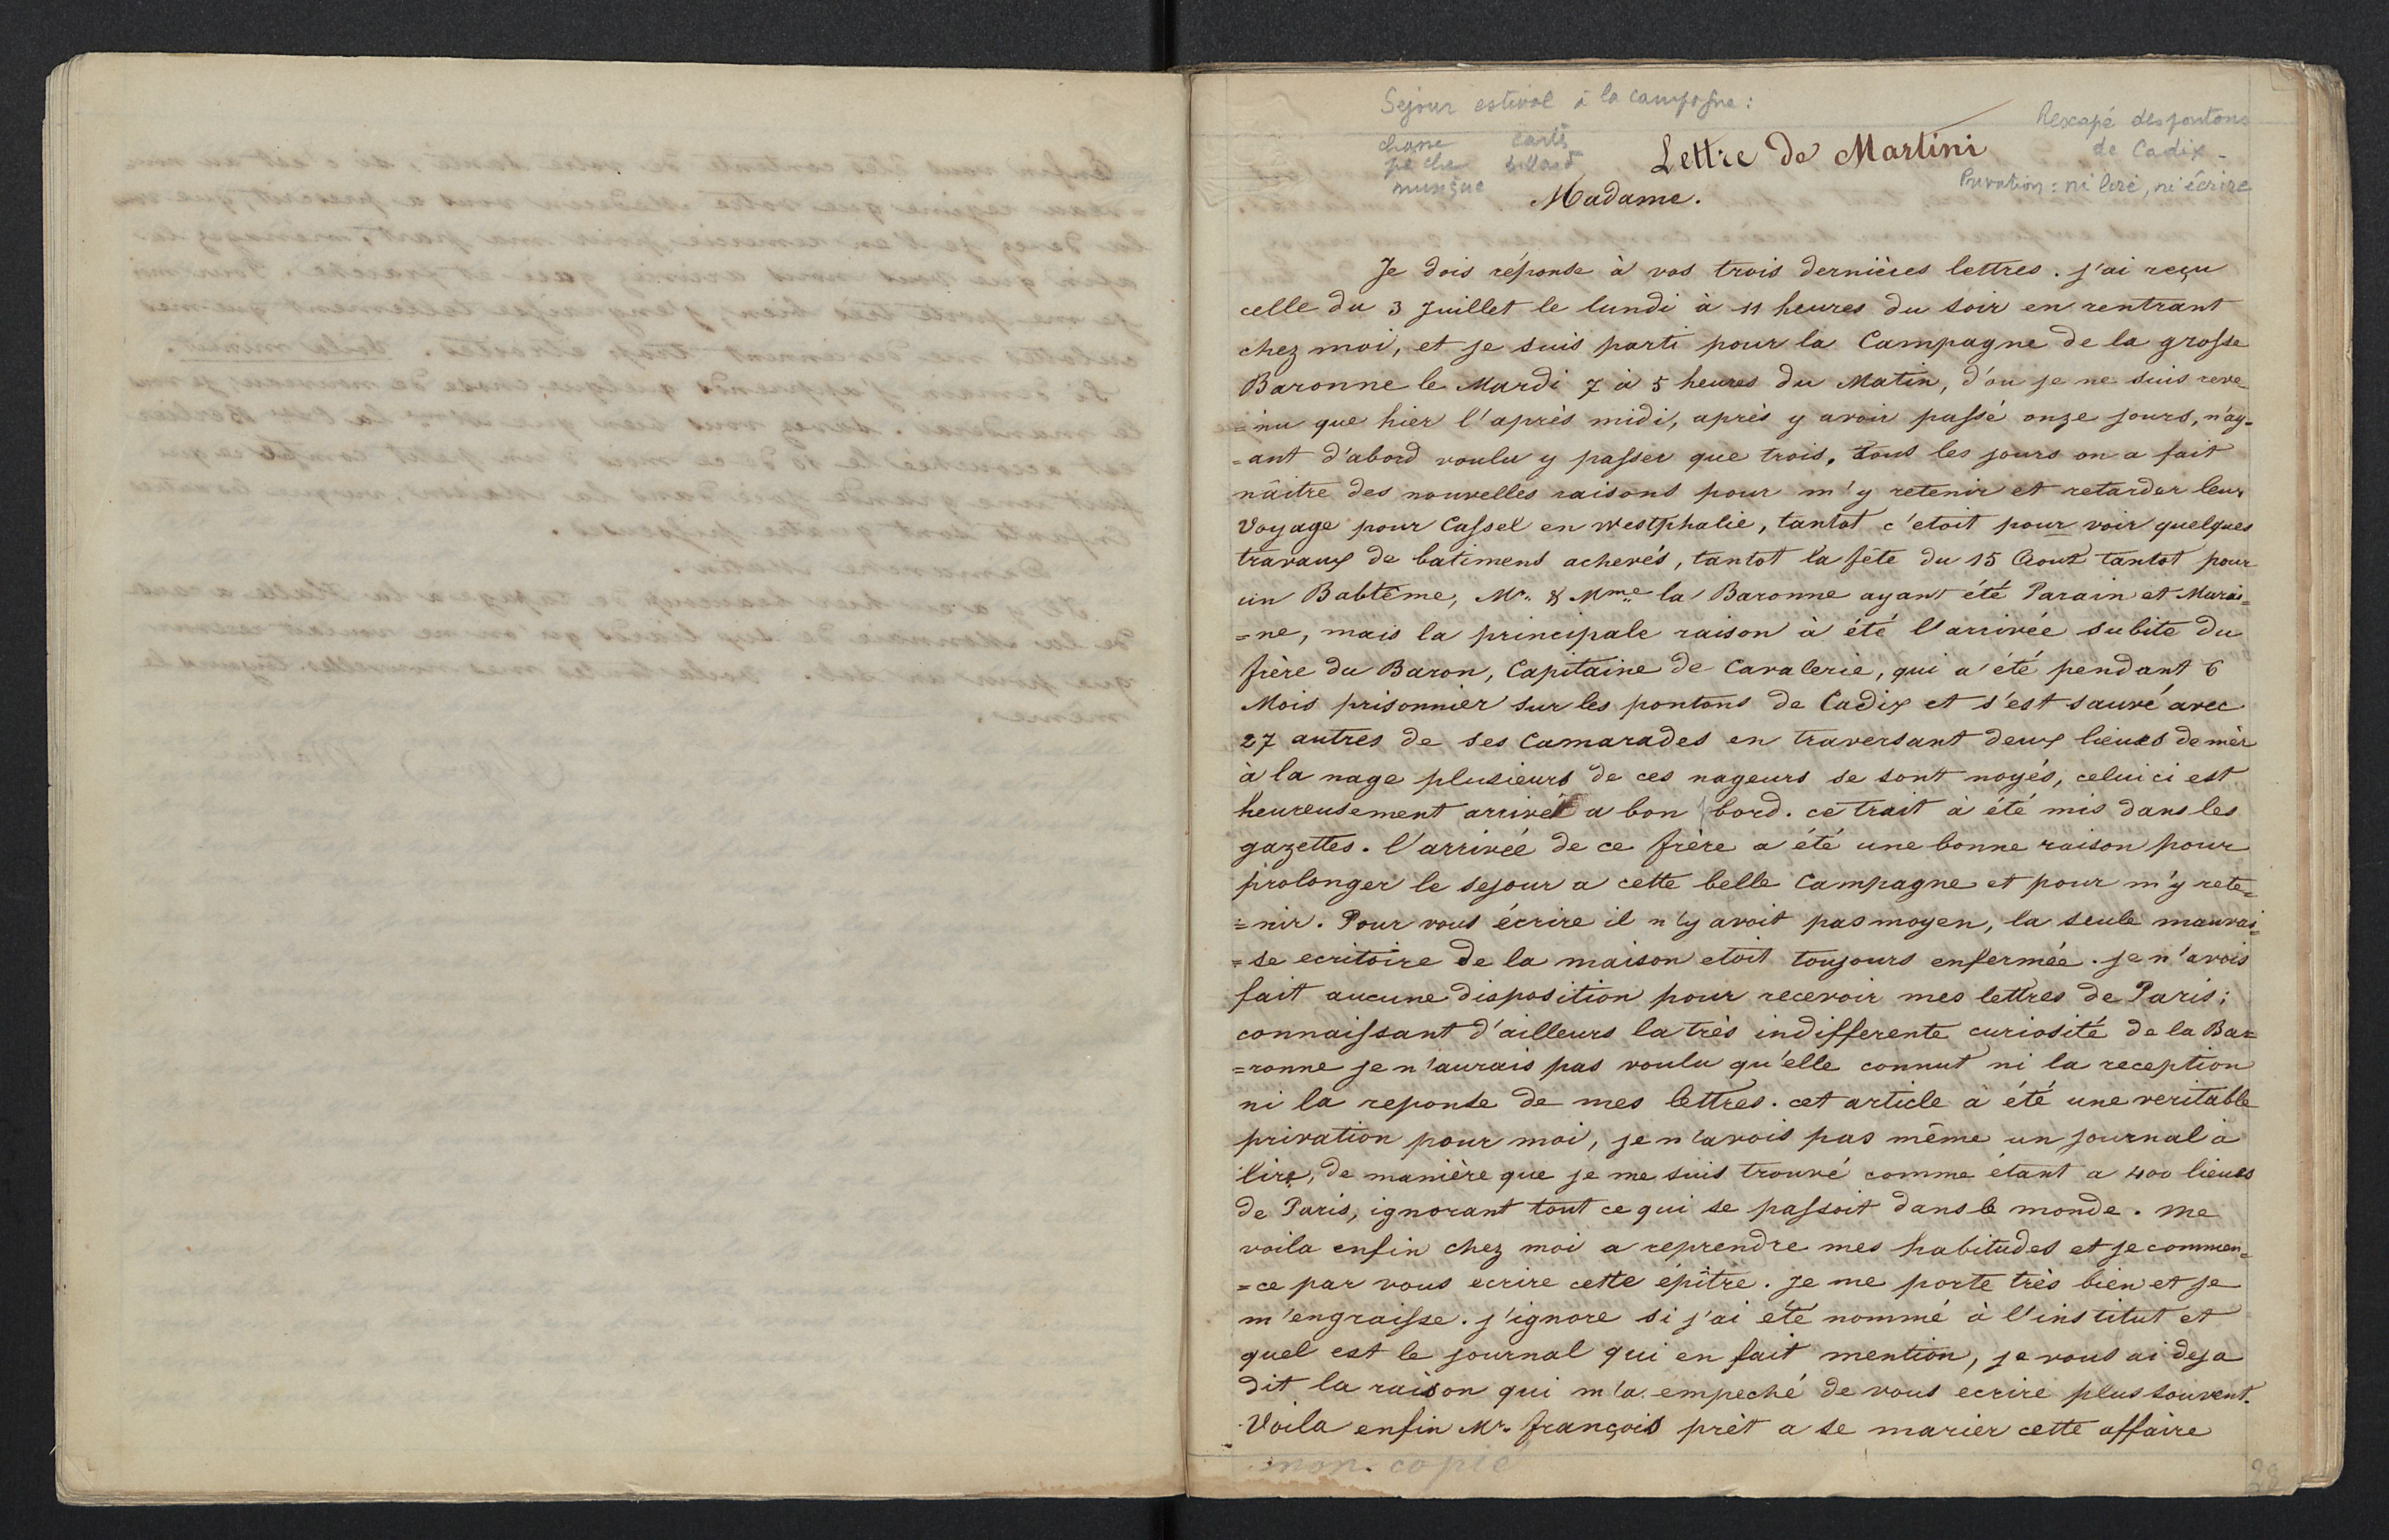 Sejour estival à la campagne :
chasse cartes
pêche billard
musique
Rescapé des pontons
de Cadix -
Privation : ni lire, ni écrire
Lettre de Martini
Madame.
Je dois réponse à vos trois dernières lettres. j'ai reçu
celle du 3 Juillet le lundi à 11 heures du soir en rentrant
chez moi, et je suis parti pour la Campagne de la grosse
Baronne le Mardi 7 à 5 heures du Matin, d'ou je ne suis reve-
=nu que hier l'après midi, après y avoir passé onze jours, n'ay-
=ant d'abord voulu y passer que trois. tous les jours on a fait
nâitre des nouvelles raisons pour m'y retenir et retarder leur
Voyage pour Cassel en westphalie, tantot c'etoit pour voir quelques
travaux de batimens achevés, tantot la fête du 15 Aout tantot pour
un Babtême, Mr. & Mme la Baronne ayant été Parain et Marai=
=ne, mais la principale raison à été l'arrivée subite du
frère du Baron, Capitaine de Cavalerie, qui a été pendant 6
Mois prisonnier sur les pontons de Cadix et s'est sauvé avec
27 autres de ses Camarades en traversant deux lieues de mèr
à la nage plusieurs de ces nageurs se sont noyés, celui ci est
heureusement arrivé a bon bord. ce trait à été mis dans les
gazettes. l'arrivée de ce frère a été une bonne raison pour
prolonger le sejour a cette belle Campagne et pour m'y rete=
=nir. Pour vous écrire il n'y avoit pas moyen, la seule mauvai=
=se ecritoire de la maison etoit toujours enfermée. je n'avois
fait aucune disposition pour recevoir mes lettres de Paris ;
connaissant d'ailleurs la très indifferente curiosité de la Ba=
=ronne je n'aurais pas voulu qu'elle connut ni la reception
ni la reponse de mes lettres. cet article à été une veritable
privation pour moi, je n'avois pas même un journal à
lire, de manière que je me suis trouvé comme étant a 400 lieues
de Paris, ignorant tout ce qui se passoit dans le monde. me
voila enfin chez moi a reprendre mes habitudes et je commen=
=ce par vous ecrire cette epître. Je me porte très bien et je
m'engraisse. j'ignore si j'ai été nommé à l'institut et
quel est le journal qui en fait mention, je vous ai deja
dit la raison qui m'a empeché de vous ecrire plus souvent.
Voila enfin Mr. françois prèt a se marier cette affaire
mon. copie
28